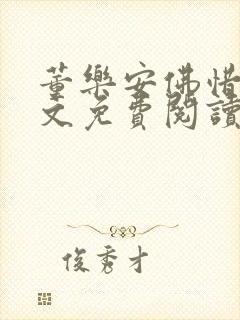 董樂安佛惜
文免費閱讀
俊秀才